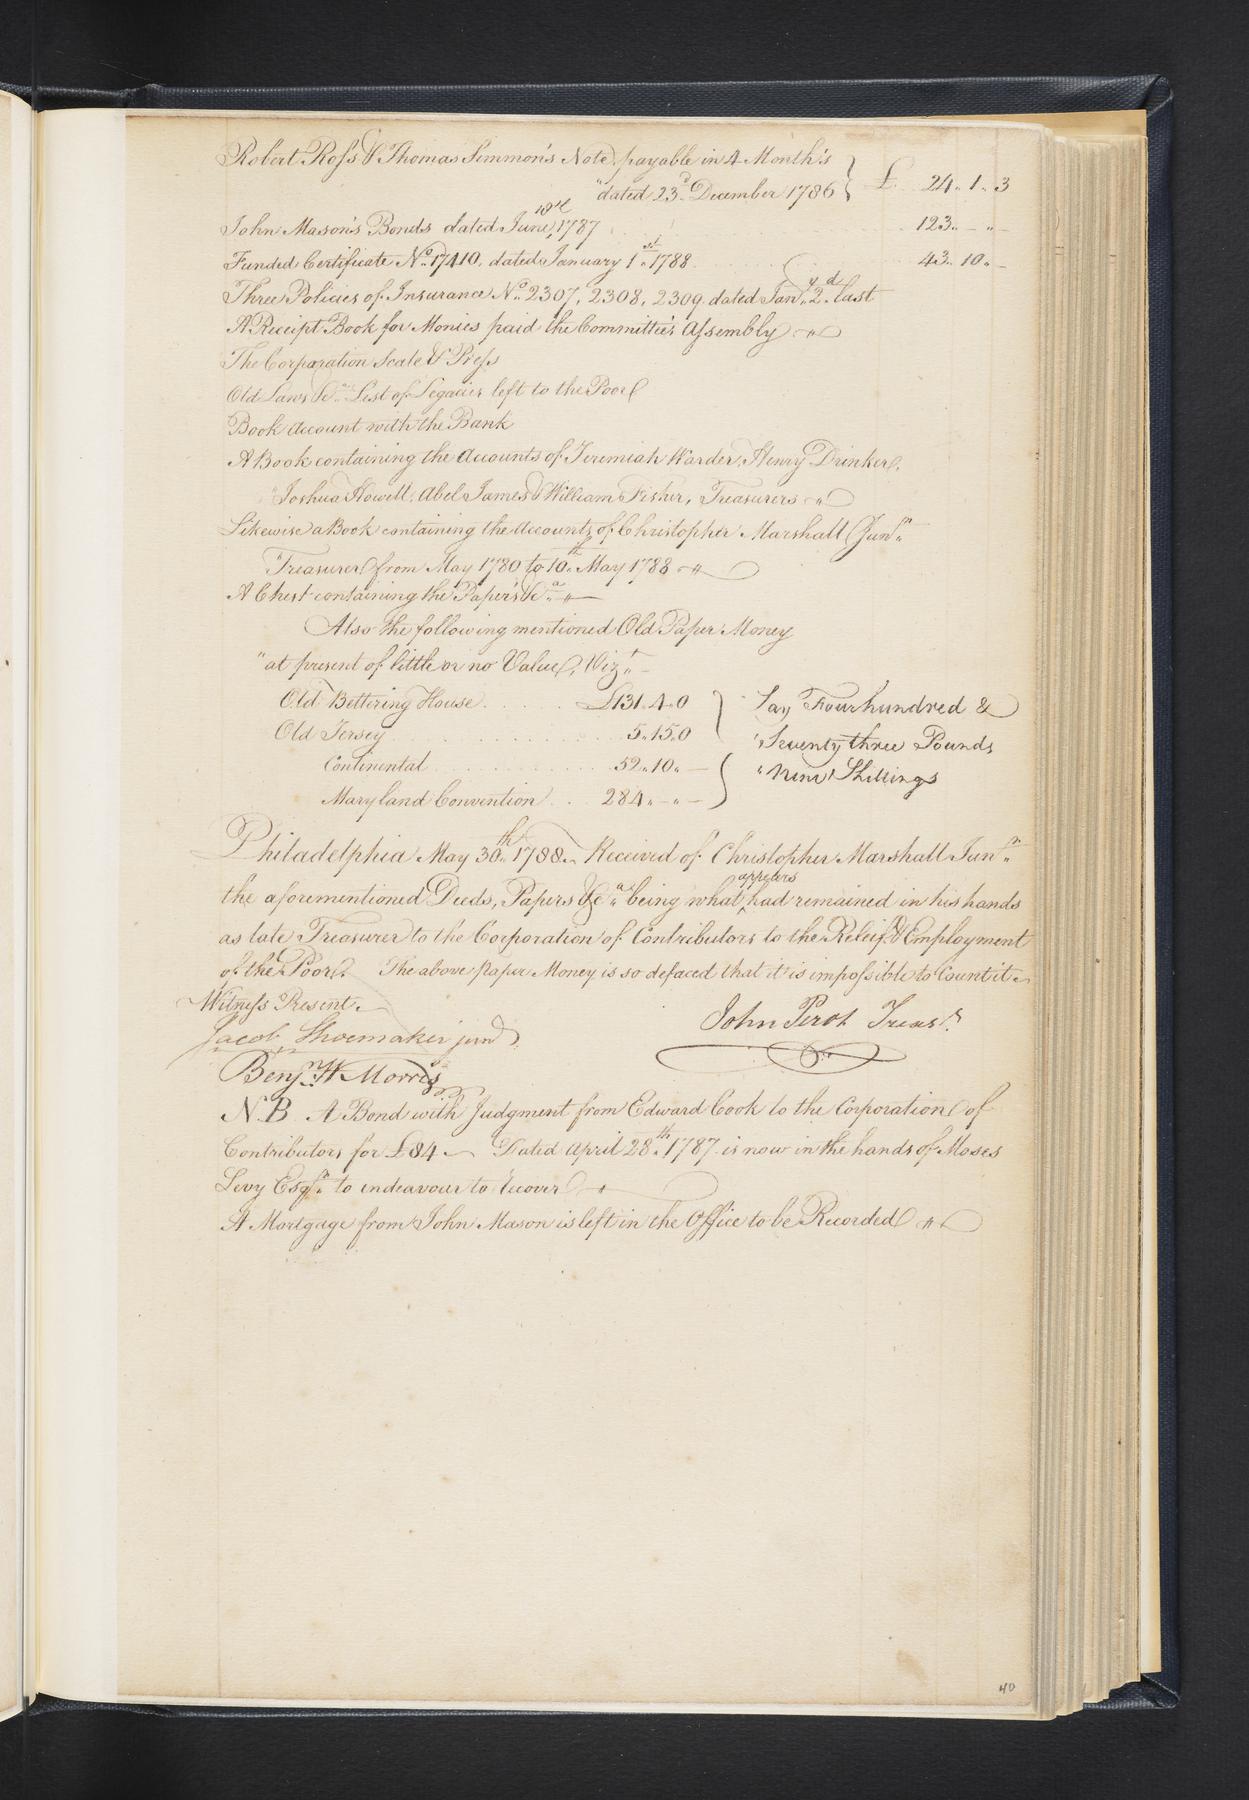 Robert Ross & Thomas Simmon's Note, payable in 4 Month's
"dated 23d. December 1786 } £ 24.. 1.. 3
John Mason's Bonds dated June, 1787 123.. - .. -
Funded Certificate No. 17410, dated January 1st. 1788 43.. 10.. -
Three Policies of Insurance No. 2307, 2308, 2309. dated Jany. 2d. last
A Receipt Book for Monies paid the Committee's Assembly
The Corporation Seale & Press
Old Laws &ca. List of Legacies left to the Poor
Book Account with the Bank
A Book containing the Accounts of Jeremiah Warder, Henry Drinker,
"Joshua Howell, Abel James & William Fisher, Treasurers
Likewise a Book containing the Accounts of Christopher Marshall Junr.
"Treasurer from May 1780 to 10th. May 1788
A Chest containing the Paper's &ca.
Also the following mentioned Old Paper Money
"at present of little or no Value, Vizt.
Old Bettering House £131.. 4.. 0 } Say Four hundred &
Old Jersey 5.. 15.. 0 "Seventy three Pounds
Continental 52.. 10.. - "Nine Shillings
Maryland Convention 284.. - .. -
Philadelphia May 30th. 1788. Received of Christopher Marshall Junr.
the aforementioned Deeds, Papers &ca. being what ^appears had remained in his hands
as late Treasurer to the Corporation of Contributors to the Releif & Employment
of the Poor. The above Paper Money is so defaced that it is impossible to Count it
Witness Present
John Perot Treasr.
Jacob Shoemaker junr
Benjn. W Morris
N.B. A Bond with Judgment from Edward Cook to the Corporation of
Contributors for £84 — Dated April 28th. 1787 is now in the hands of Moses
Levy Esqr. to endeavour to recover
A Mortgage from John Mason is left in the Office to be Recorded
40